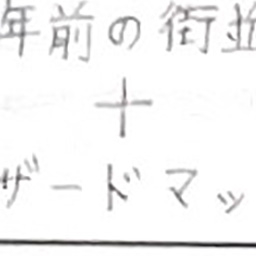 年前の街並
+
ザードマッ